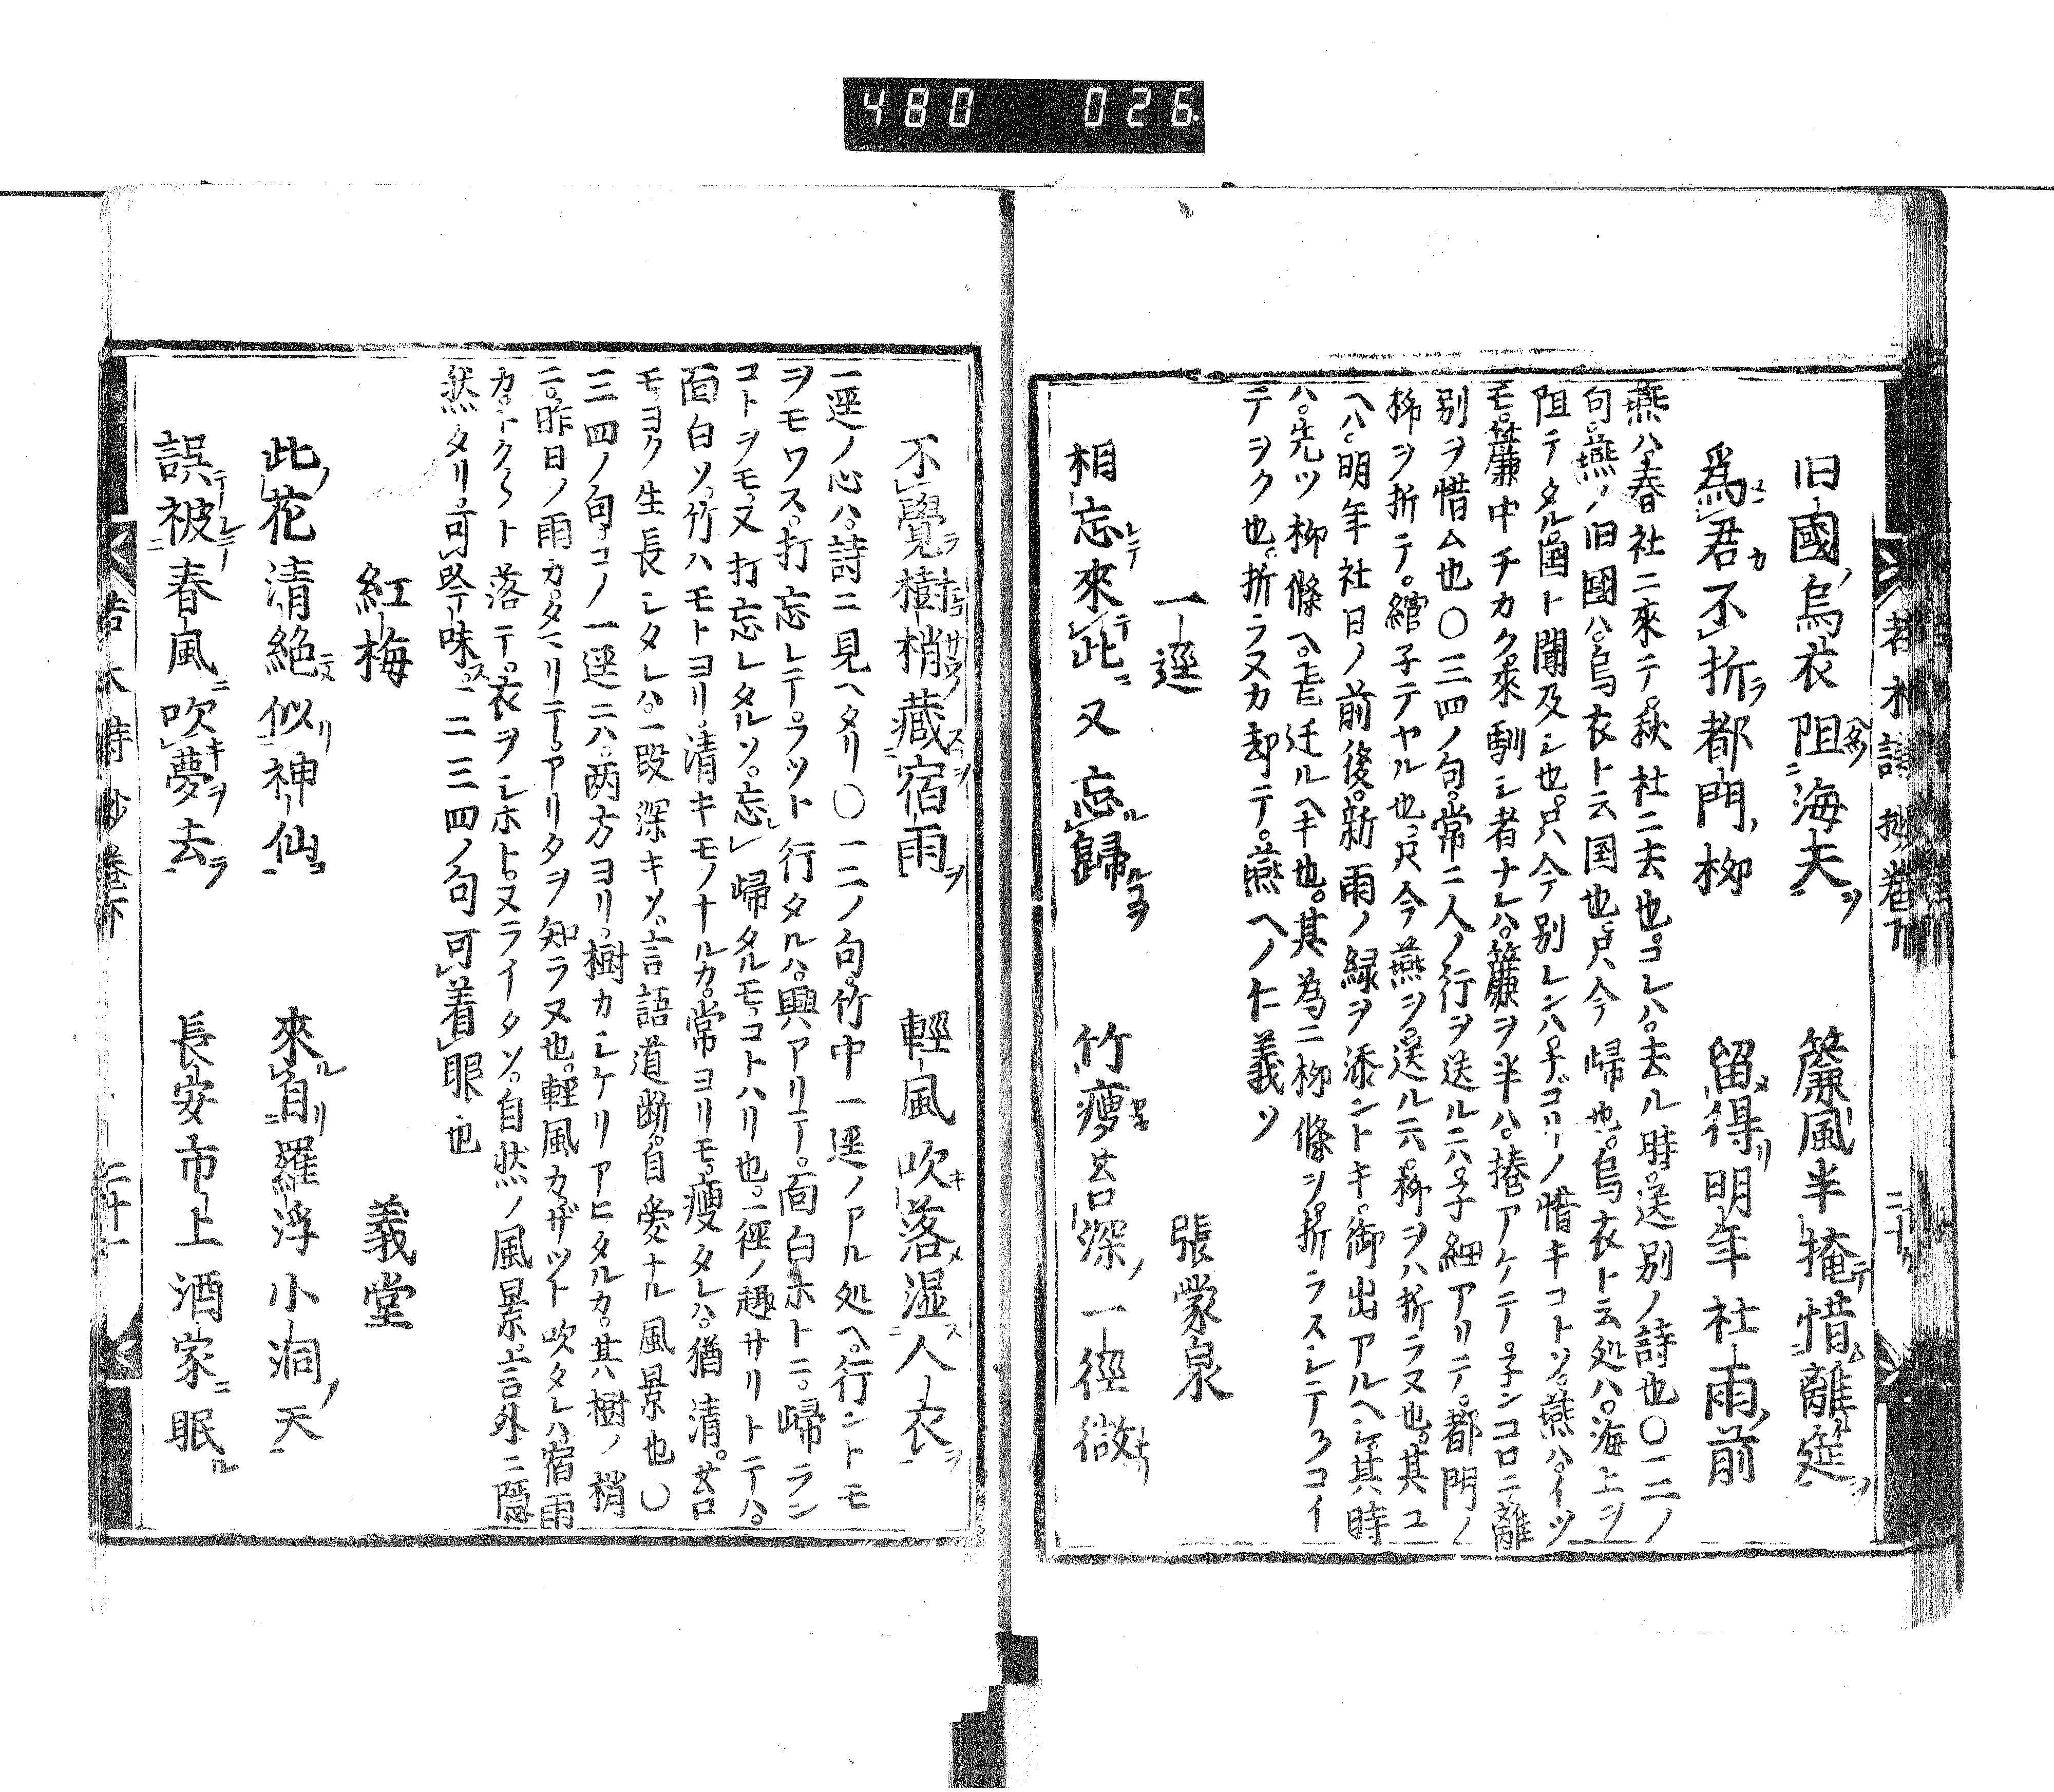 480 026
旧國ノ烏衣阻海夫 簾風半掩惜離筵
爲君不折都門ノ柳 留得明年社雨ノ前
燕ハ春社ニ來テ秋社ニ去也コレハ去ル時送別ノ詩也〇一二ノ
句燕ノ旧國ハ烏衣ト云国也只今帰也烏衣ト云処ハ海上ヲ
阻テタル國ト聞及シ也只今別レンハ名ゴリノ惜キコトソ燕ハイツ
モ簾中チカク來馴シ者ナレハ簾ヲ半ハ捲アケテ
別ヲ惜ム也〇三四ノ句常ニ人ノ行ヲ送ルニハ子細アリテ都門ノ
柳ヲ折テ綰子テヤル也只今燕ヲ送ルニハ柳ヲハ折ラヌ也其ユ
ヘハ明年社日ノ前後新雨ノ緑ヲ添ントキ御出アルヘシ其時
ハ先ツ柳條ヘ迁ルヘキ也其為ニ柳條ヲ折ラスシテ
テヲク也折ラヌカ却テ燕ヘノ仁義ソ
一逕 張蒙泉
相忘來此又忘歸 竹瘦苔深ノ一徑微
不覺樹梢藏宿雨 輕風吹落湿人衣
一逕ノ心ハ詩ニ見ヘタリ〇一二ノ句竹中一逕ノアル処ヘ行ントモ
ヲモワス打忘レテラット行タルハ興アリテ面白ホトニ帰ラン
コトヲモ又打忘レタルソ忘帰タルモコトハリ也一徑ノ趣サリトテハ
面白ソ竹ハモトヨリ清キモノナルカ常ヨリモ瘦タレハ猶清苔
モヨク生長シタレハ一段深キソ言語道断自愛ナル風景也〇
三四ノ句コノ一逕ニハ两方ヨリ樹カシケリアヒタルカ其樹ノ梢
ニ昨日ノ雨カタマリテアリタヲ知ラヌ也輕風カザット吹タレハ宿雨
カトク〱ト落テ衣ヲシホトヌライタソ自然ノ風景言外ニ隠
然タリ可吟味一二三四ノ句可着眼也
紅梅 義堂
此ノ花清絶似神仙 來自羅浮小洞ノ天
誤被春風吹夢去 長安市上酒家眠